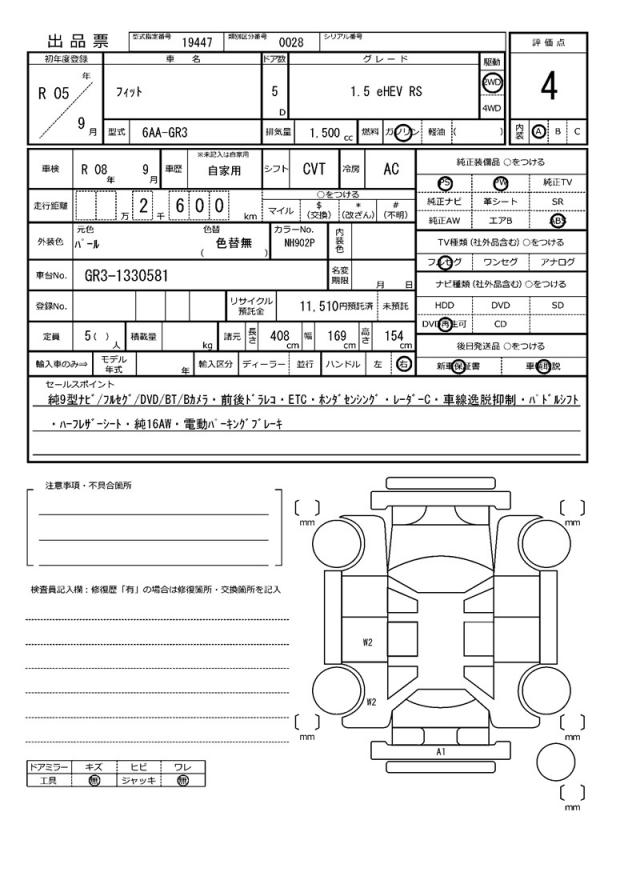 出品票 型式指定番号 19447 類別区分番号 0028 シリアル番号
評価点
4
初年度登録 車名 ドア数 グレード 駆動
R 05 年 9 月 フィット 5 D 1.5 eHEV RS 2WD 4WD
型式 6AA-GR3 排気量 1.500 cc 燃料 ガソリン 軽油 ( ) 内装 A B C
車検 R 08 年 9 月 車歴 ※未記入は自家用 自家用 シフト CVT 冷房 AC
純正装備品 ○をつける
PS PW 純正TV
純正ナビ 革シート SR
純正AW エアB ABS
走行距離 万 2 千 6 0 0 km
○をつける
マイル $ (交換) * (改ざん) # (不明)
外装色 元色 パール 色替 ( 色替無 ) カラーNo. NH902P 内装色
TV種類 (社外品含む) ○をつける
フルセグ ワンセグ アナログ
車台No. GR3-1330581 名変期限 月 日
ナビ種類 (社外品含む) ○をつける
HDD DVD SD
DVD再生可 CD
登録No. リサイクル預託金 11,510円預託済 未預託
定員 5 ( ) 人 積載量 kg 諸元 長さ 408 cm 幅 169 cm 高さ 154 cm
後日発送品 ○をつける
新車保証書 車輌取説
輸入車のみ⇒ モデル年式 年 輸入区分 ディーラー 並行 ハンドル 左 右
セールスポイント
純9型ナビ/フルセグ/DVD/BT/Bカメラ・前後ドラレコ・ETC・ホンダセンシング・レーダーC・車線逸脱抑制・パドルシフト
・ハーフレザーシート・純16AW・電動パーキングブレーキ
注意事項・不具合箇所
検査員記入欄：修復歴「有」の場合は修復箇所・交換箇所を記入
mm
mm
W2
W2
mm
mm
A1
mm
ドアミラー キズ ヒビ ワレ
工具 無 ジャッキ 無